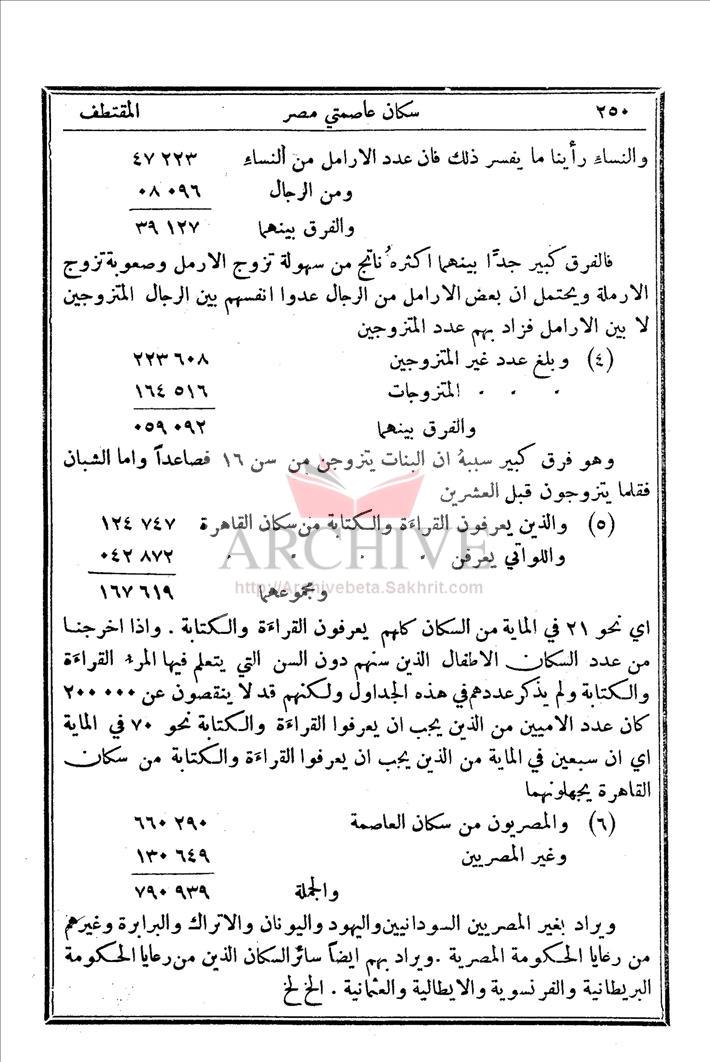 ٢٥٠ سكان عاصمتي مصر المقتطف
والنساءِ رأينا ما يفسر ذلك فان عدد الارامل من النساءِ ٤٧ ٢٢٣
ومن الرجال ٠٨ ٠٩٦
والفرق بينهما ٣٩ ١٢٧
فالفرق كبير جدًّا بينهما اكثرهُ ناتج من سهولة تزوج الارمل وصعوبة تزوج
الارملة ويحتمل ان بعض الارامل من الرجال عدوا انفسهم بين الرجال المتزوجين
لا بين الارامل فزاد بهم عدد المتزوجين
(٤) وبلغ عدد غير المتزوجين ٢٢٣ ٦٠٨
" " " المتزوجات ١٦٤ ٥١٦
والفرق بينهما ٠٥٩ ٠٩٢
وهو فرق كبير سببهُ ان البنات يتزوجن من سن ١٦ فصاعداً واما الشبان
فقلما يتزوجون قبل العشرين
(٥) والذين يعرفون القراءَة والكتابة من سكان القاهرة ١٢٤ ٧٤٧
واللواتي يعرفن " " " " ٠٤٢ ٨٧٢
ARCHIVE
http://Archivebeta.Sakhrit.com
ومجموعهما ١٦٧ ٦١٩
اي نحو ٢١ في الماية من السكان كلهم يعرفون القراءَة والكتابة . واذا اخرجنا
من عدد السكان الاطفال الذين سنهم دون السن التي يتعلم فيها المرءُ القراءَة
والكتابة ولم يذكر عددهم في هذه الجداول ولكنهم قد لا ينقصون عن ٢٠٠ ٠٠٠
كان عدد الاميين من الذين يجب ان يعرفوا القراءَة والكتابة نحو ٧٠ في الماية
اي ان سبعين في الماية من الذين يجب ان يعرفوا القراءَة والكتابة من سكان
القاهرة يجهلونهما
(٦) والمصريون من سكان العاصمة ٦٦٠ ٢٩٠
وغير المصريين ١٣٠ ٦٤٩
والجملة ٧٩٠ ٩٣٩
ويراد بغير المصريين السودانيين واليهود واليونان والاتراك والبرابرة وغيرهم
من رعايا الحكومة المصرية . ويراد بهم ايضاً سائر السكان الذين من رعايا الحكومة
البريطانية والفرنسوية والايطالية والعثمانية . الخ لخ